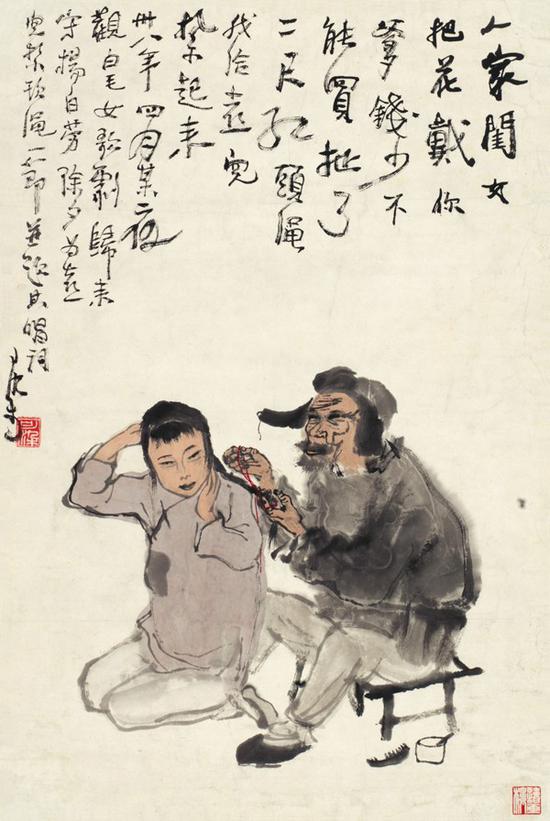 人家閨女
把花戴你
爹錢少不
能買扯了
二尺紅頭繩
我给喜兒
紮起来
卅八年四月某夜
觀白毛女歌劇歸来
寫楊白劳除夕为喜
兒紮頭繩一節並题其唱词